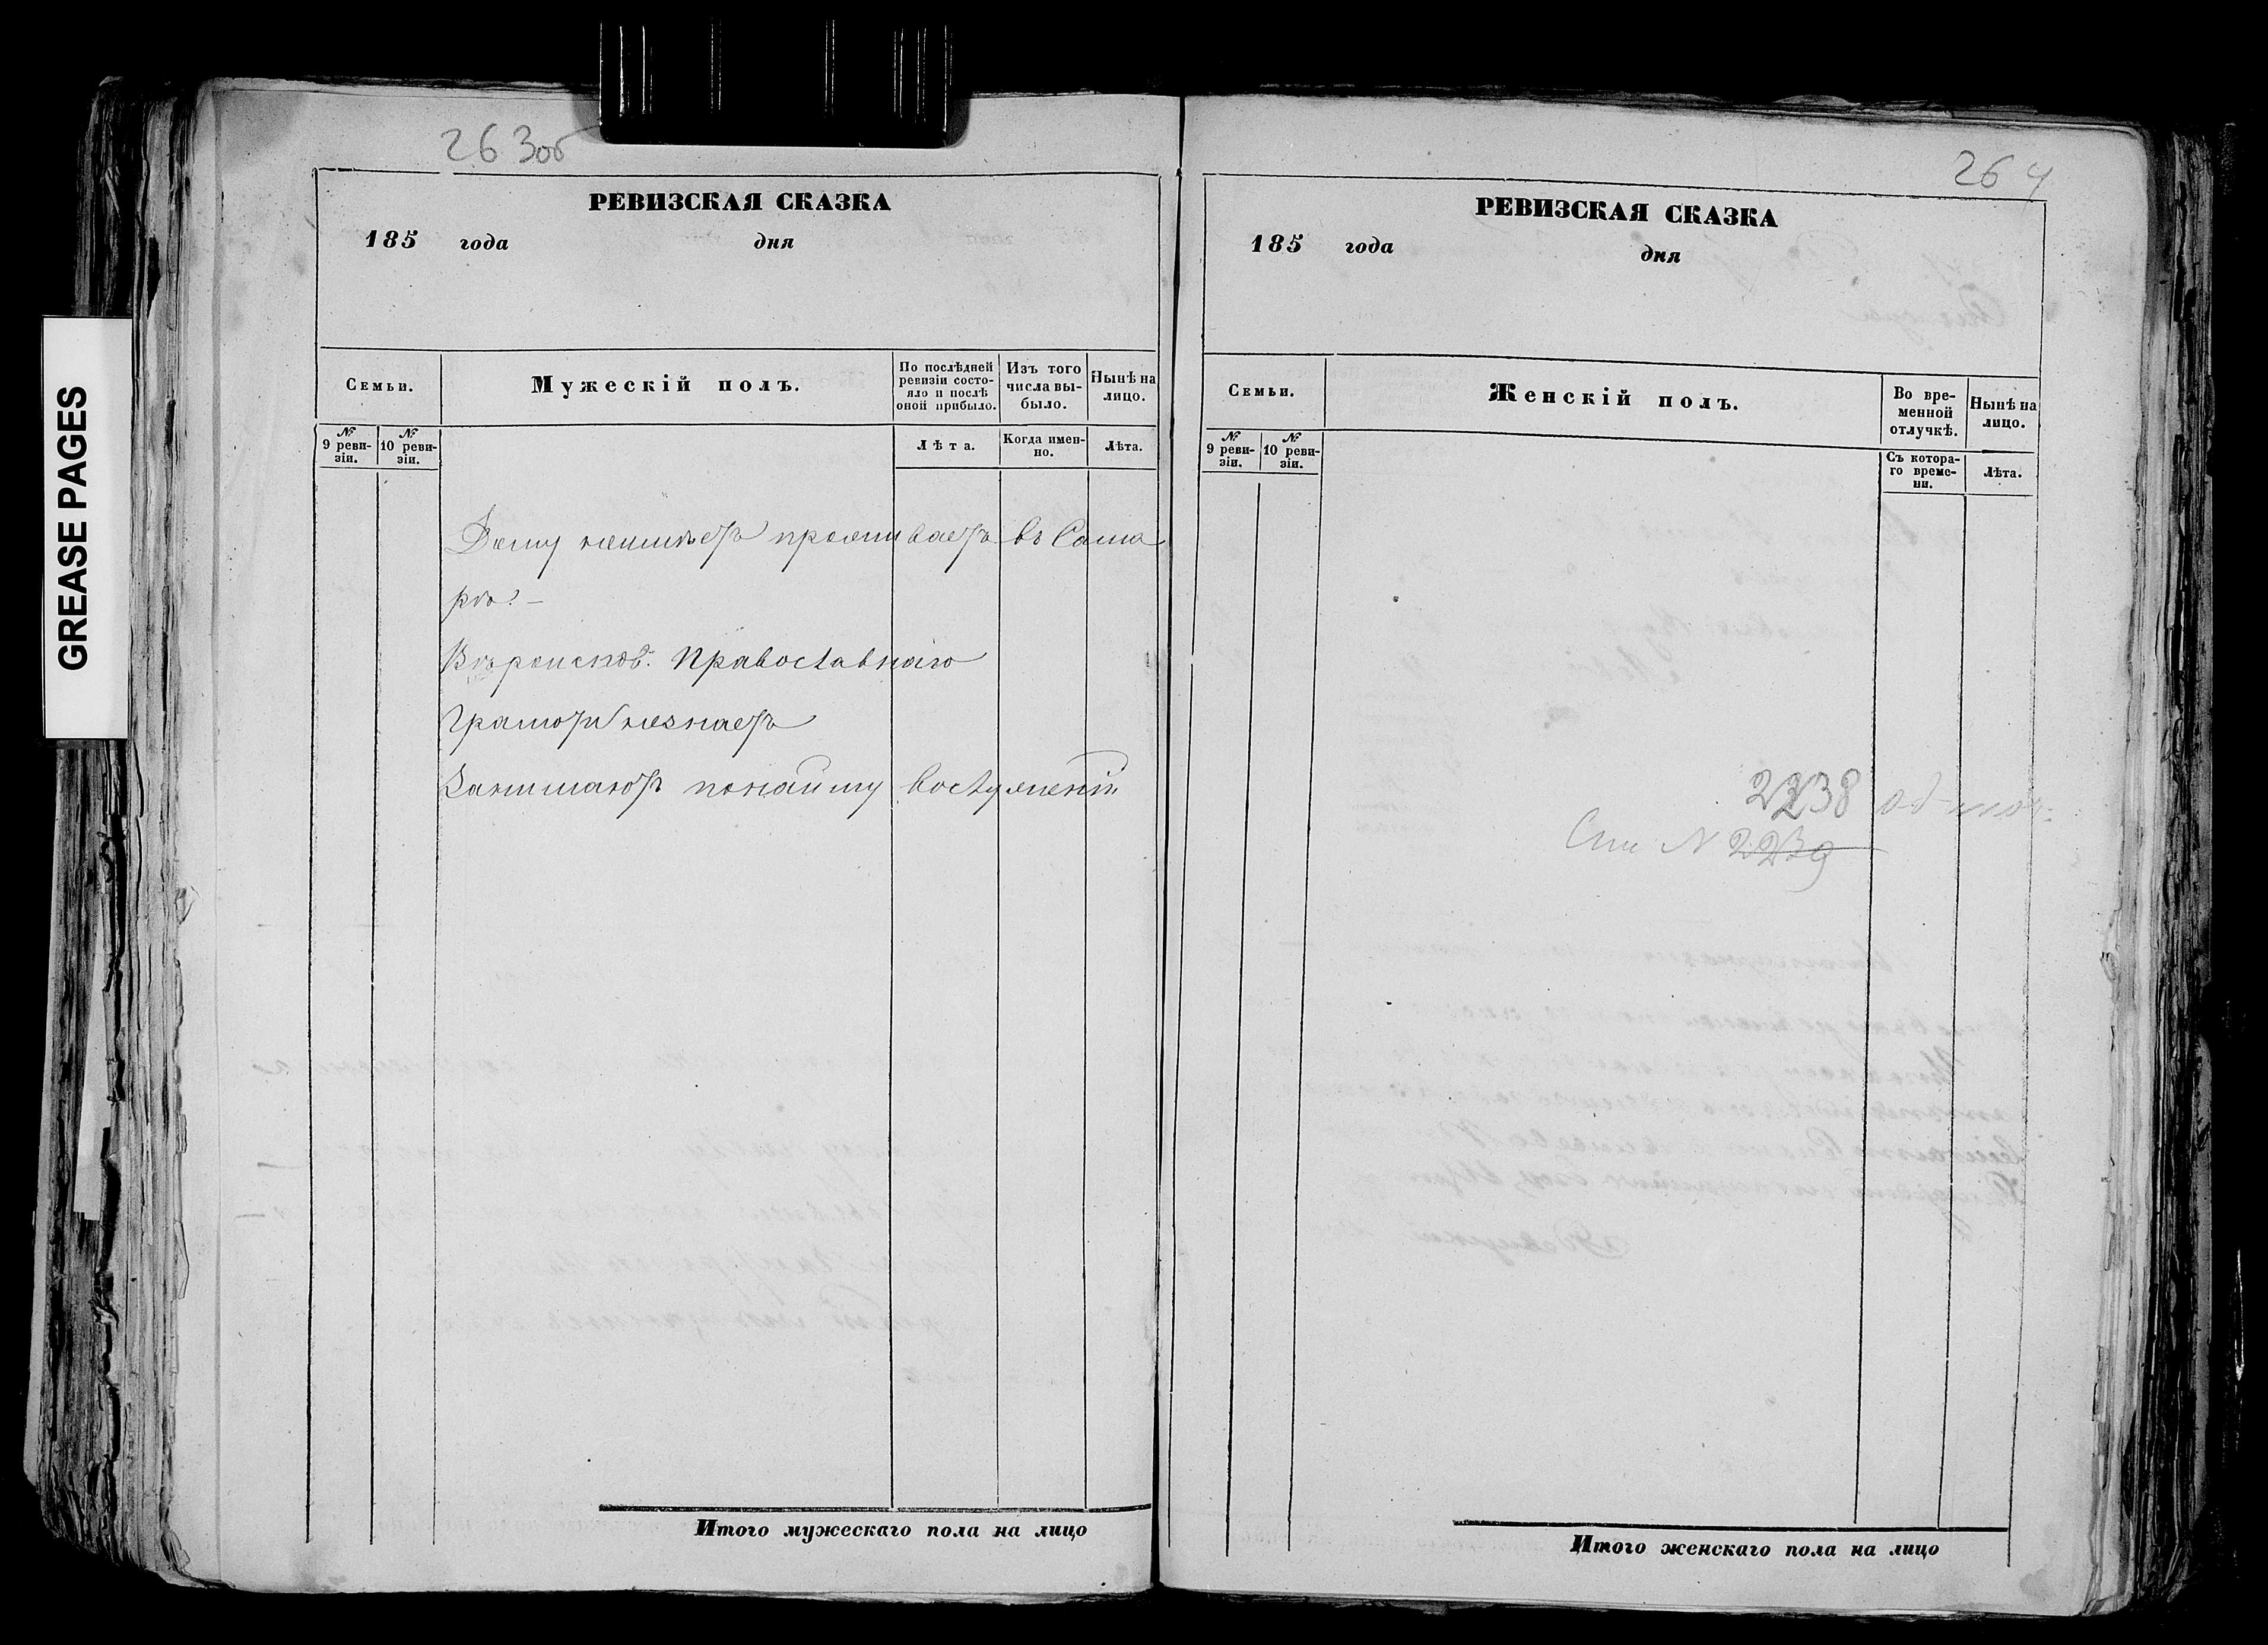 GREASE PAGES
263 об
РЕВИЗСКАЯ СКАЗКА
185 года дня
Семьи.
Мужескій полъ.
По послѣдней ревизіи состояло и послѣ оной прибыло.
Изъ того числа выбыло.
Нынѣ на лицо.
№ 9 ревизіи.
№ 10 ревизіи.
Лѣта.
Когда именно.
Лѣта.
Дому неимѣетъ проживаетъ въ Сама
рѣ. —
Вѣроисповѣд. Православнаго
Грамотѣ незнаетъ
Занимаютъ понайму вослуженіи
Итого мужескаго пола на лицо
264
РЕВИЗСКАЯ СКАЗКА
185 года дня
Семьи.
Женскій полъ.
Во временной отлучкѣ.
Нынѣ на лицо.
№ 9 ревизіи.
№ 10 ревизіи.
Съ котораго времени.
Лѣта.
2238
N 2239
Итого женскаго пола на лицо